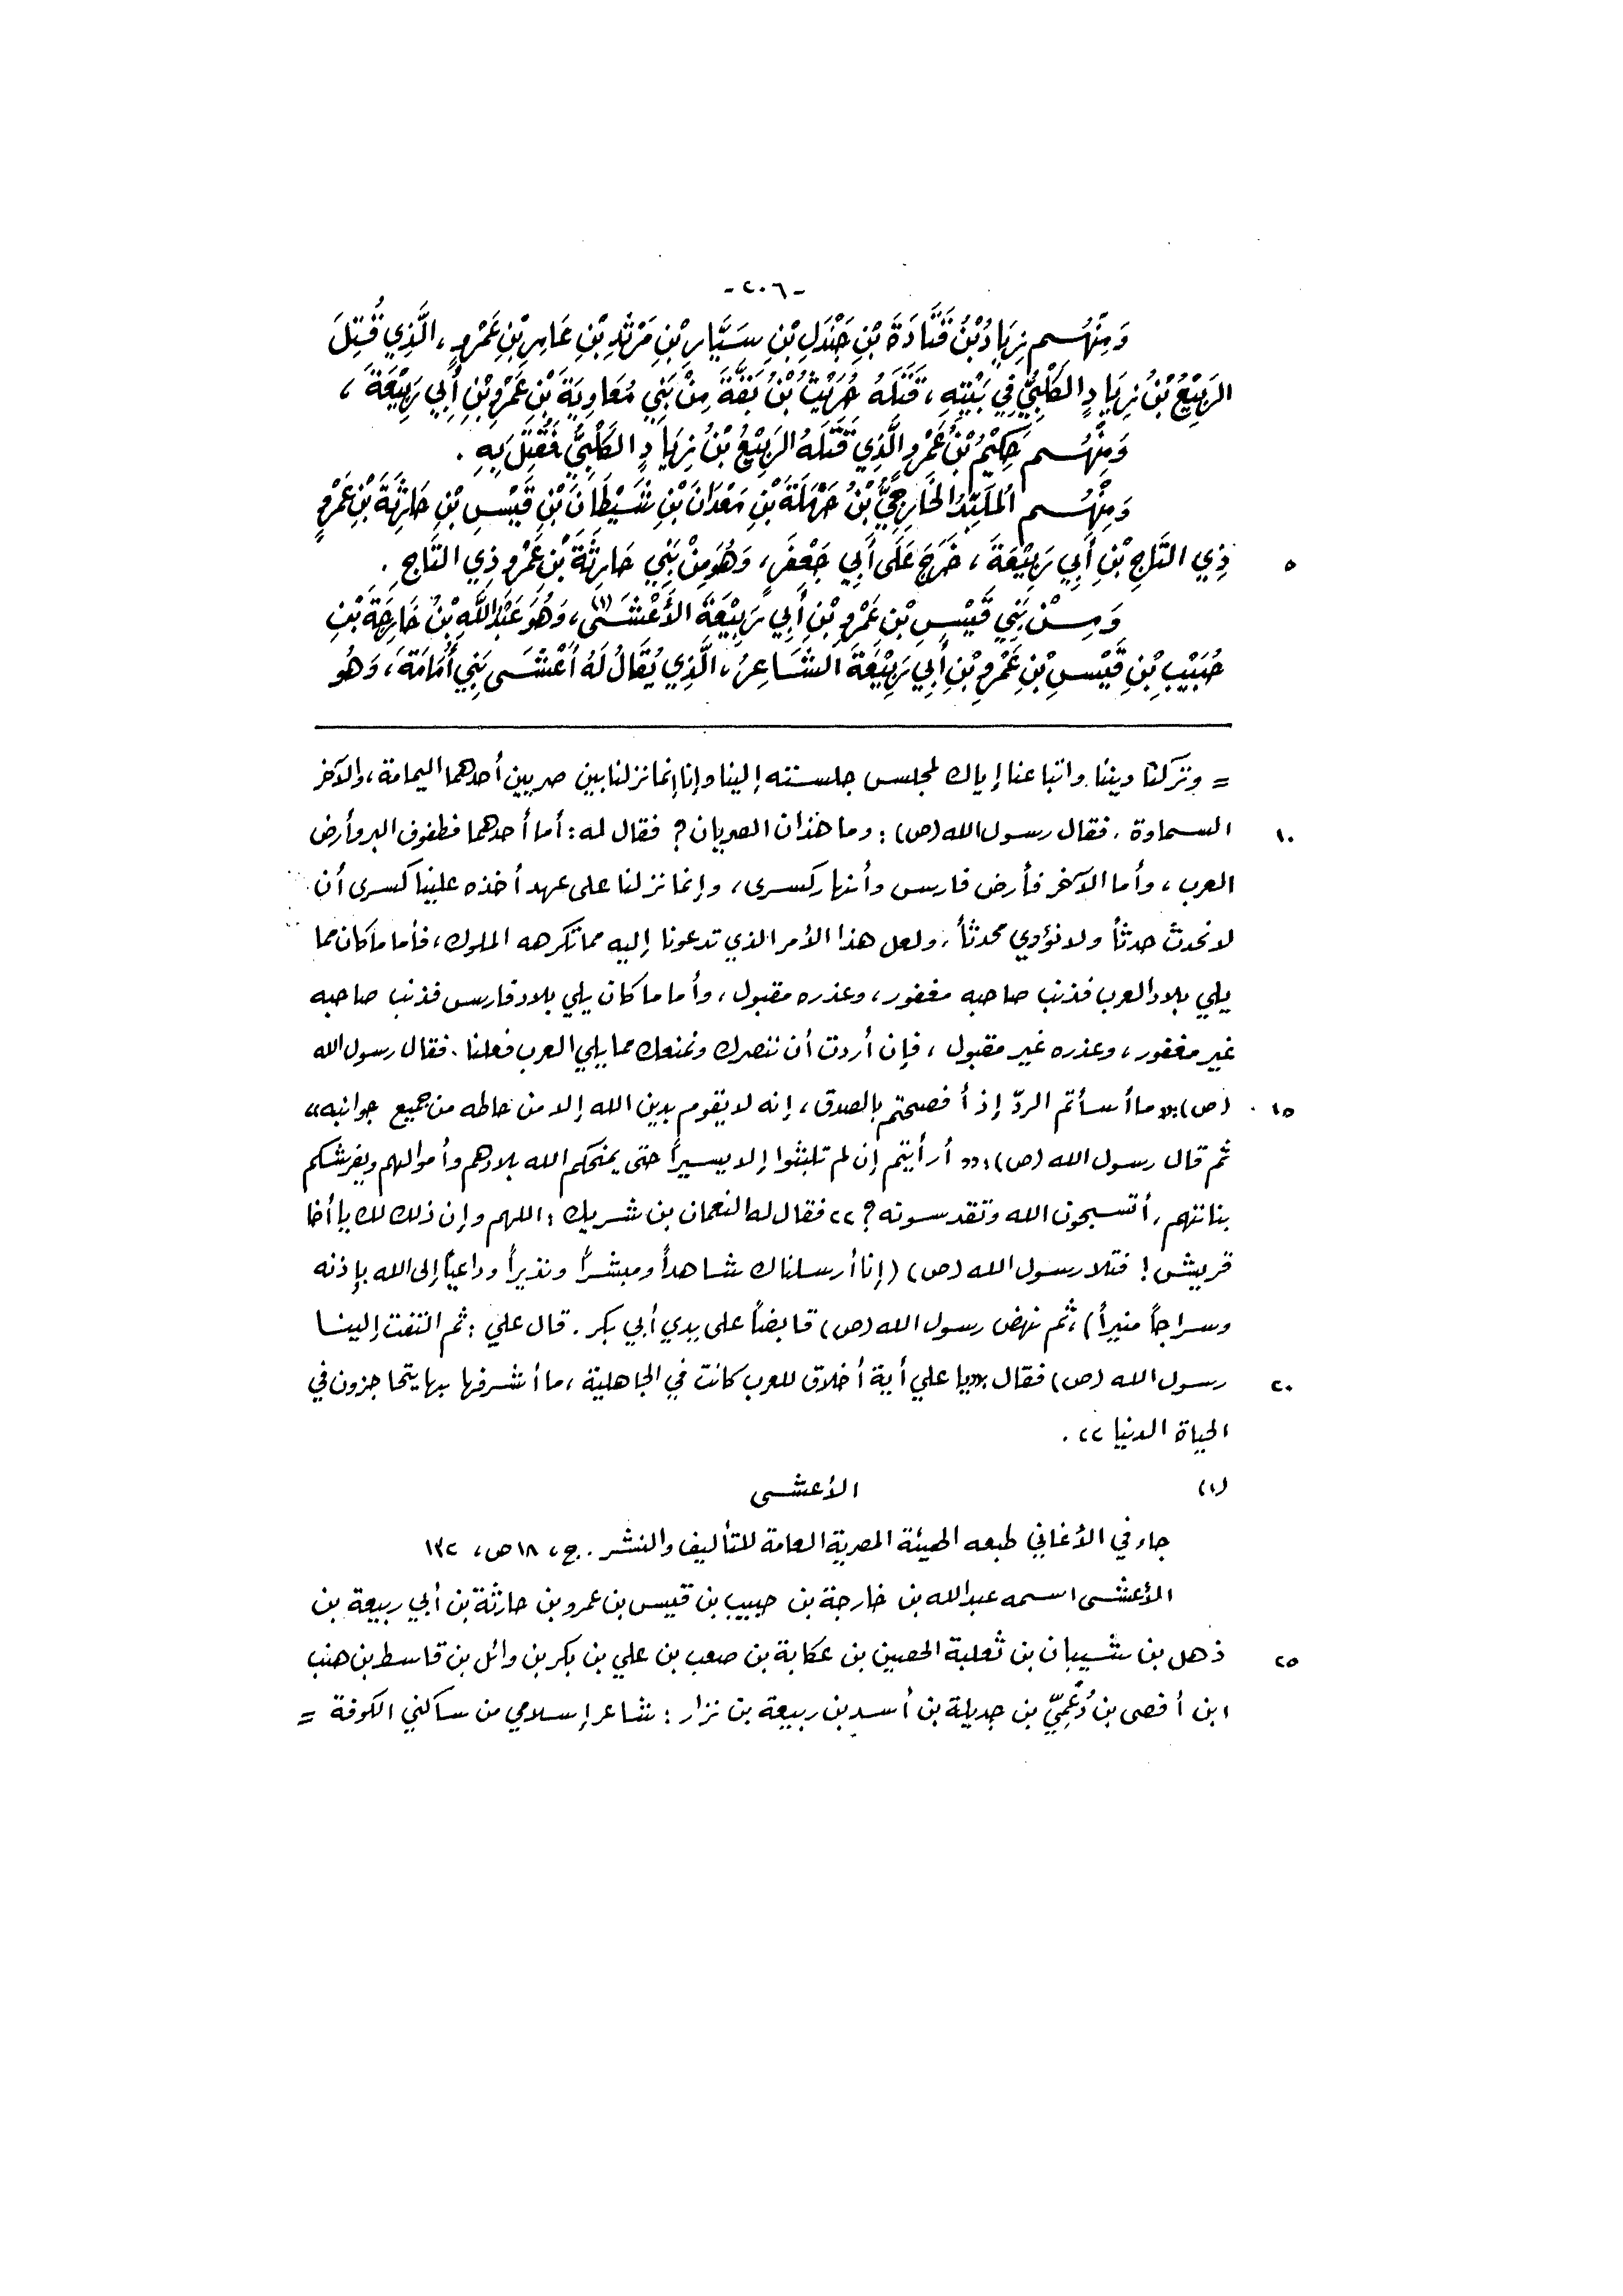 -٢٠٦-
وَمِنْهُم زِيَادُ بْنُ قَتَادَةَ بْنِ جَنْدَلِ بْنِ سَيَّارِ بْنِ مَرْثَدِ بْنِ عَامِرِ بْنِ عَمْرٍو، الَّذِي قُتِلَ
الرَبِيْعُ بْنُ زِيَادٍ الكَلْبِيُّ فِي بَيْتِهِ، قَتَلَهُ حُرَيْثُ بْنُ مِنْ بَنِي مُعَاوِيَةَ بْنِ عَمْرِو بْنِ أَبِي رَبِيْعَةَ،
وَمِنْهُم حَكِيْمُ بْنُ عَمْرٍو الَّذِي قَتَلَهُ الرَبِيْعُ بْنُ زِيَادٍ الكَلْبِيُّ فَقُتِلَ بِهِ.
وَمِنْهُم المُلَبِّدُ الخَارِجِيُّ بْنُ حَرْمَلَةَ بْنِ مَعْدَانَ بْنِ شَيْطَانَ بْنِ قَيْسِ بْنِ حَارِثَةَ بْنِ عَمْرٍو
٥ ذِي التَّاجِ بْنِ أَبِي رَبِيْعَةَ، خَرَجَ عَلَى أَبِي جَعْفَرٍ، وَهُوَ مِنْ بَنِي حَارِثَةَ بْنِ عَمْرٍو ذِي التَّاجِ.
وَمِنْ بَنِي قَيْسِ بْنِ عَمْرِو بْنِ أَبِي رَبِيْعَةَ الأَعْشَى(١)، وَهُوَ عَبْدُ اللَّهِ بْنُ خَارِجَةَ بْنِ
حُبَيْبِ بْنِ قَيْسِ بْنِ عَمْرِو بْنِ أَبِي رَبِيْعَةَ الشَّاعِرُ، الَّذِي يُقَالُ لَهُ أَعْشَى بَنِي أُمَامَةَ، وَهُوَ
= وتركنا ديننا واتباعنا إياك لمجلس جلسته إلينا وإنا إنما نزلنا بين صريين أحدهما اليمامة، والآخر
١٠ السماوة. فقال رسول الله (ص): وما هذان الصريان؟ فقال له: أما أحدهما فطفوف البر وأرض
العرب، وأما الآخر فأرض فارس وأنهار كسرى، وإنما نزلنا على عهد أخذه علينا كسرى أن
لا نحدث حدثاً ولا نؤوي محدثاً، ولعل هذا الأمر الذي تدعونا إليه مما تكرهه الملوك، فأما ما كان مما
يلي بلاد العرب فذنب صاحبه مغفور، وعذره مقبول، وأما ما كان يلي بلاد فارس فذنب صاحبه
غير مغفور، وعذره غير مقبول، فإن أردت أن ننصرك ونمنعك مما يلي العرب فعلنا. فقال رسول الله
١٥ (ص): «ما أسأتم الردّ إذ أفصحتم بالصدق، إنه لا يقوم بدين الله إلا من حاطه من جميع جوانبه»
ثم قال رسول الله (ص): «أرأيتم إن لم تلبثوا إلا يسيراً حتى يمنحكم الله بلادهم وأموالهم ويفرشكم
بناتهم، أتسبحون الله وتقدسونه؟» فقال له النعمان بن شريك: اللهم وإن ذلك لك يا أخا
قريش! فتلا رسول الله (ص) (إنا أرسلناك شاهداً ومبشراً ونذيراً وداعياً إلى الله بإذنه
وسراجاً منيراً)، ثم نهض رسول الله (ص) قابضاً على يدي أبي بكر. قال علي: ثم التفت إلينا
٢٠ رسول الله (ص) فقال: «يا علي أية أخلاق للعرب كانت في الجاهلية، ما أشرفها بها يتحاجزون في
الحياة الدنيا».
(١) الأعشى
جاء في الأغاني طبعه الهيئة المصرية العامة للتأليف والنشر. ج، ١٨ ص، ١٣٢
الأعشى اسمه عبدالله بن خارجة بن حبيب بن قيس بن عمرو بن حارثة بن أبي ربيعة بن
٢٥ ذهل بن شيبان بن ثعلبة الحصين بن عكابة بن صعب بن علي بن بكر بن وائل بن قاسط بن هنب
ابن أفصى بن دُعْمِيّ بن جديلة بن أسد بن ربيعة بن نزار: شاعر إسلامي من ساكني الكوفة =